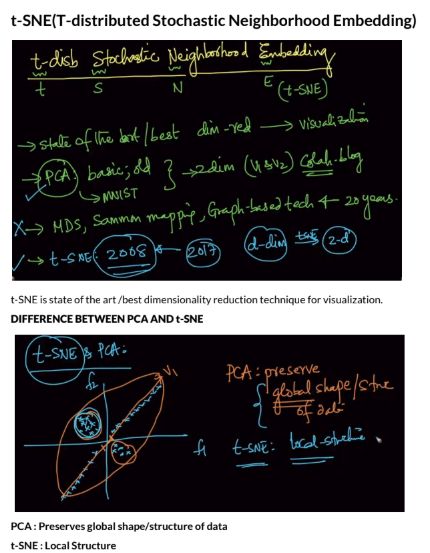 t-SNE(T-distributed Stochastic Neighborhood Embedding)
t-disb Stochastic Neighborhood Embedding
t S N E (t-SNE)
→ state of the art/best dim-red → visualization
→ PCA: basic, old } → 2dim (V1 & V2) Colah-blog
↳ MNIST
X → MDS, Sammon mapping, Graph-based tech ← 20 years.
✓ → t-SNE: 2008 ← 2017 d-dim tSNE→ 2-d
t-SNE is state of the art /best dimensionality reduction technique for visualization.
DIFFERENCE BETWEEN PCA AND t-SNE
t-SNE & PCA:
f2 V1
f1
PCA: preserve
global shape/stru
of data
t-SNE: local-structure
PCA : Preserves global shape/structure of data
t-SNE : Local Structure